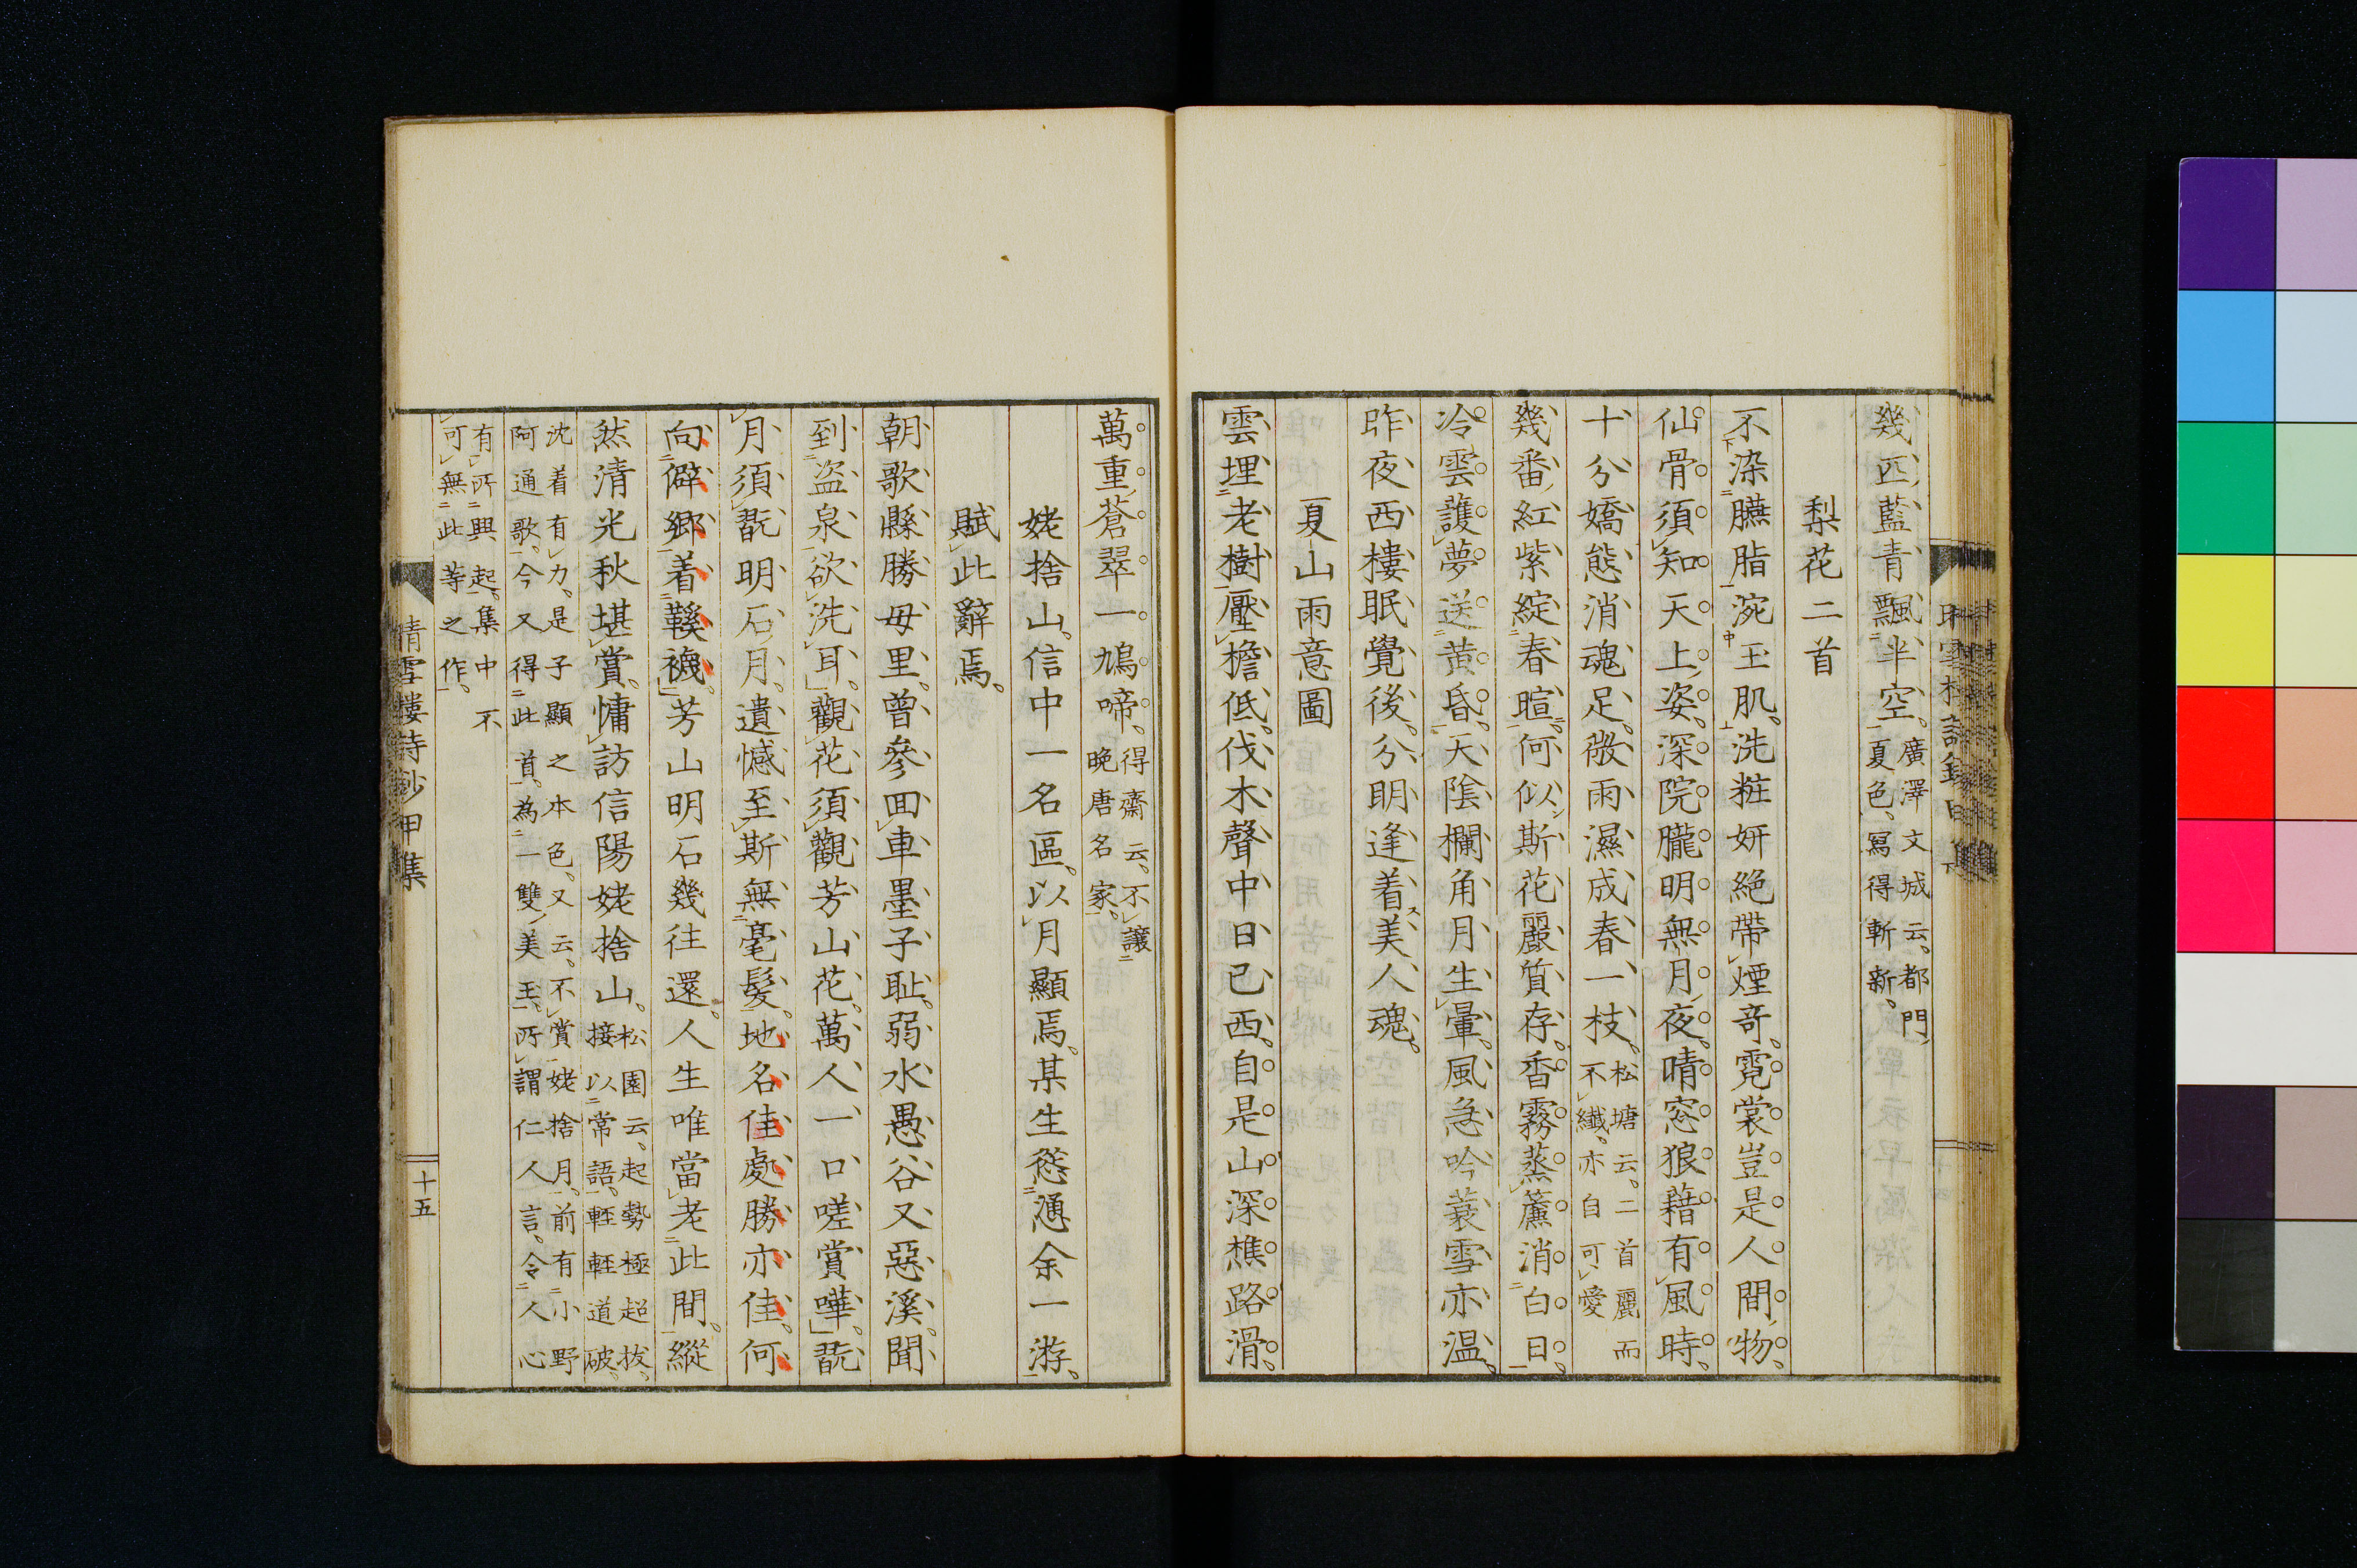 幾匹藍青飄半空。廣澤文城云、都門、
夏色、寫得斬新。
梨花二首
不染臙脂涴玉肌。洗粧妍絶帶煙奇。霓裳豈是人間物。
仙骨須知天上姿。深院朧明無月夜。晴窓狼藉有風時。
十分嬌態消魂足。微雨濕成春一枝。松塘云。二首麗而
不纎。亦自可愛
幾番紅紫綻春暄。何似斯花麗質存。香霧蒸簾消白日。
冷雲護夢送黄昏。天陰欄角月生暈。風急吟蓑雪亦温。
昨夜西樓眠覺後。分明逢着美人魂。
夏山雨意圖
雲埋老樹壓檐低。伐木聲中日已西。自是山深樵路滑。
萬重蒼翠一鳩啼。得齋云、不讓
晩唐名家。
姥捨山。信中一名區。以月顯焉。某生慫慂余一游。
賦此辭焉。
朝歌縣勝母里。曾參回車墨子耻。弱水愚谷又惡溪。聞
到盗泉欲洗耳。觀花須觀芳山花。萬人一口嗟賞嘩。翫
月須翫明石月。遺憾至斯無毫髮。地名佳處勝亦佳。何
向僻郷着鞵襪。芳山明石幾往還。人生唯當老此間。縱
然清光秋堪賞。慵訪信陽姥捨山。松園云、起勢極超拔、
接以常語。輕輕道破。
沈着有力。是子顯之本色。又云、不賞姥捨月。前有小野
阿通歌。今又得此首。為一雙美玉。所謂仁人言。令人心
有所興起。集中不
可無此等之作。
晴雪樓詩鈔甲集
十五